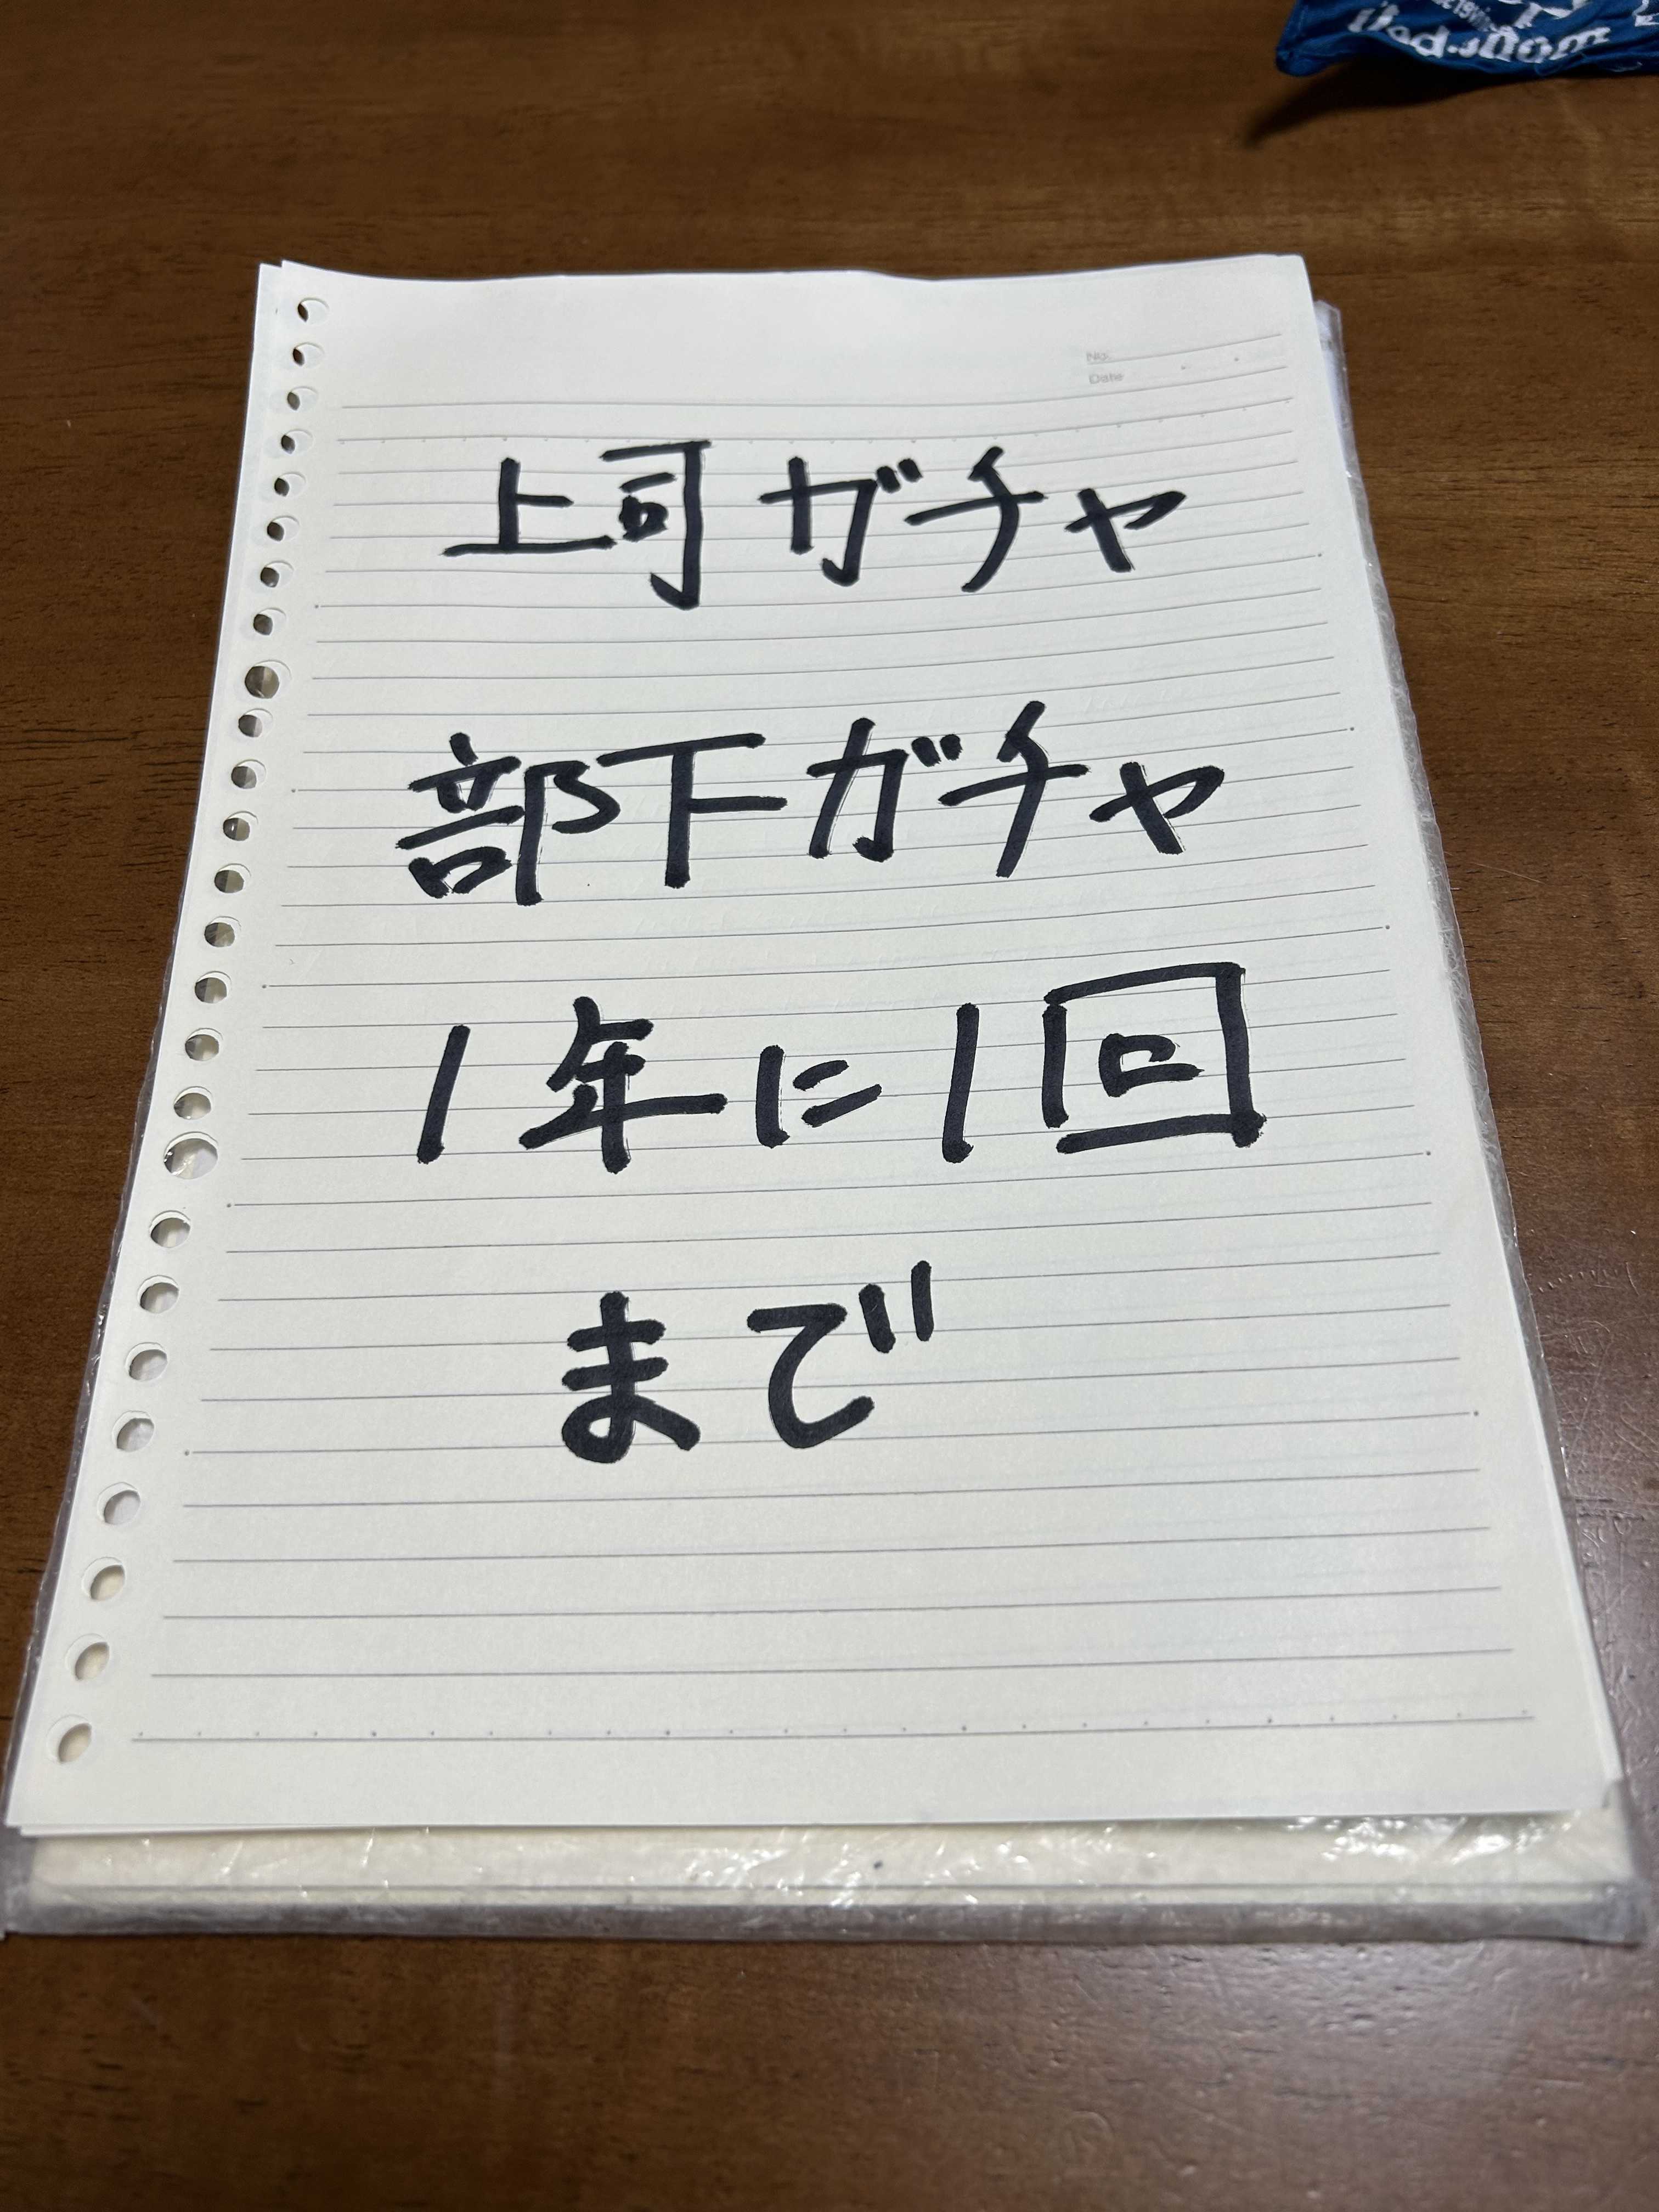 No.
Date
上司ガチャ
部下ガチャ
1年に1回
まで